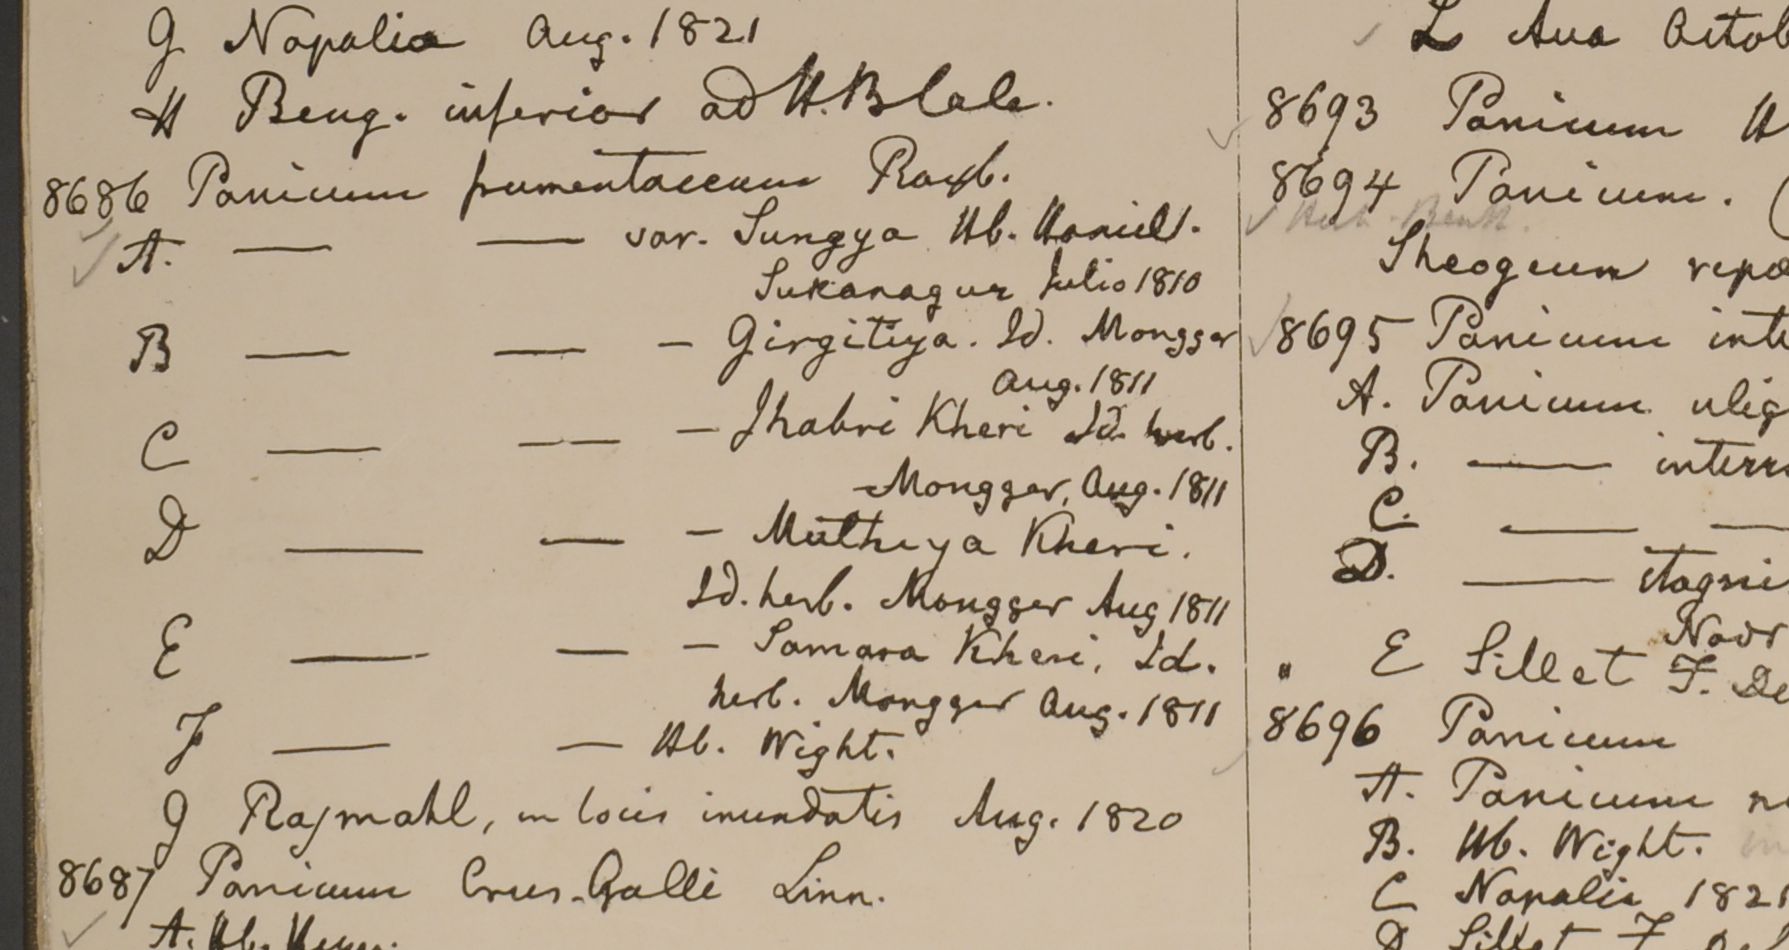 G Napalia Aug. 1821
H Beng. inferior ad H. B
8686 Panicum frumentaceum Roxb.
A. — — var. Sungya Hb. Hamilt.
Sukanagur Julio 1810
B — — — Girgitiya. Id. Mongger
Aug. 1811
C — — — Jhabri Kheri Id. herb.
Mongger, Aug. 1811
D — — — Muthiya Kheri.
Id. herb. Mongger Aug 1811
E — — — Samara Kheri, Id.
herb. Mongger Aug. 1811
F — — Hb. Wight.
G Rajmahl, in locis inundatis Aug. 1820
8687 Panicum Crus-Galli Linn.
A. Hb.
L Ava Octob
8693 Panicum H
8694 Panicum. (
Sheogeum
8695 Panicum inte
A. Panicum ulig
B. — interr
C. — —
D. — stagni
E Sillet F. De
8696 Panicum
A. Panicum
B. Hb. Wight.
C Napalia 1821
D Sillet F